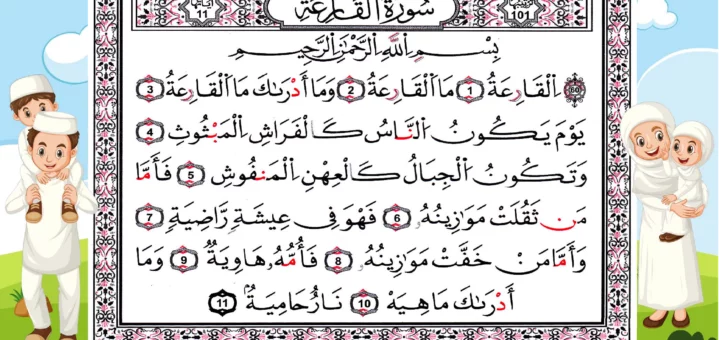 سُورَةُ الْقَارِعَةِ
101
11
بِسْمِ اللَّهِ الرَّحْمَٰنِ الرَّحِيمِ
60 الْقَارِعَةُ 1 مَا الْقَارِعَةُ 2 وَمَا أَدْرَىٰكَ مَا الْقَارِعَةُ 3
يَوْمَ يَكُونُ النَّاسُ كَالْفَرَاشِ الْمَبْثُوثِ 4
وَتَكُونُ الْجِبَالُ كَالْعِهْنِ الْمَنفُوشِ 5 فَأَمَّا
مَن ثَقُلَتْ مَوَٰزِينُهُ 6 فَهْوَ فِي عِيشَةٍ رَّاضِيَةٍ 7
وَأَمَّا مَنْ خَفَّتْ مَوَٰزِينُهُ 8 فَأُمُّهُ هَاوِيَةٌ 9 وَمَا
أَدْرَىٰكَ مَا هِيَهْ 10 نَارٌ حَامِيَةٌ 11